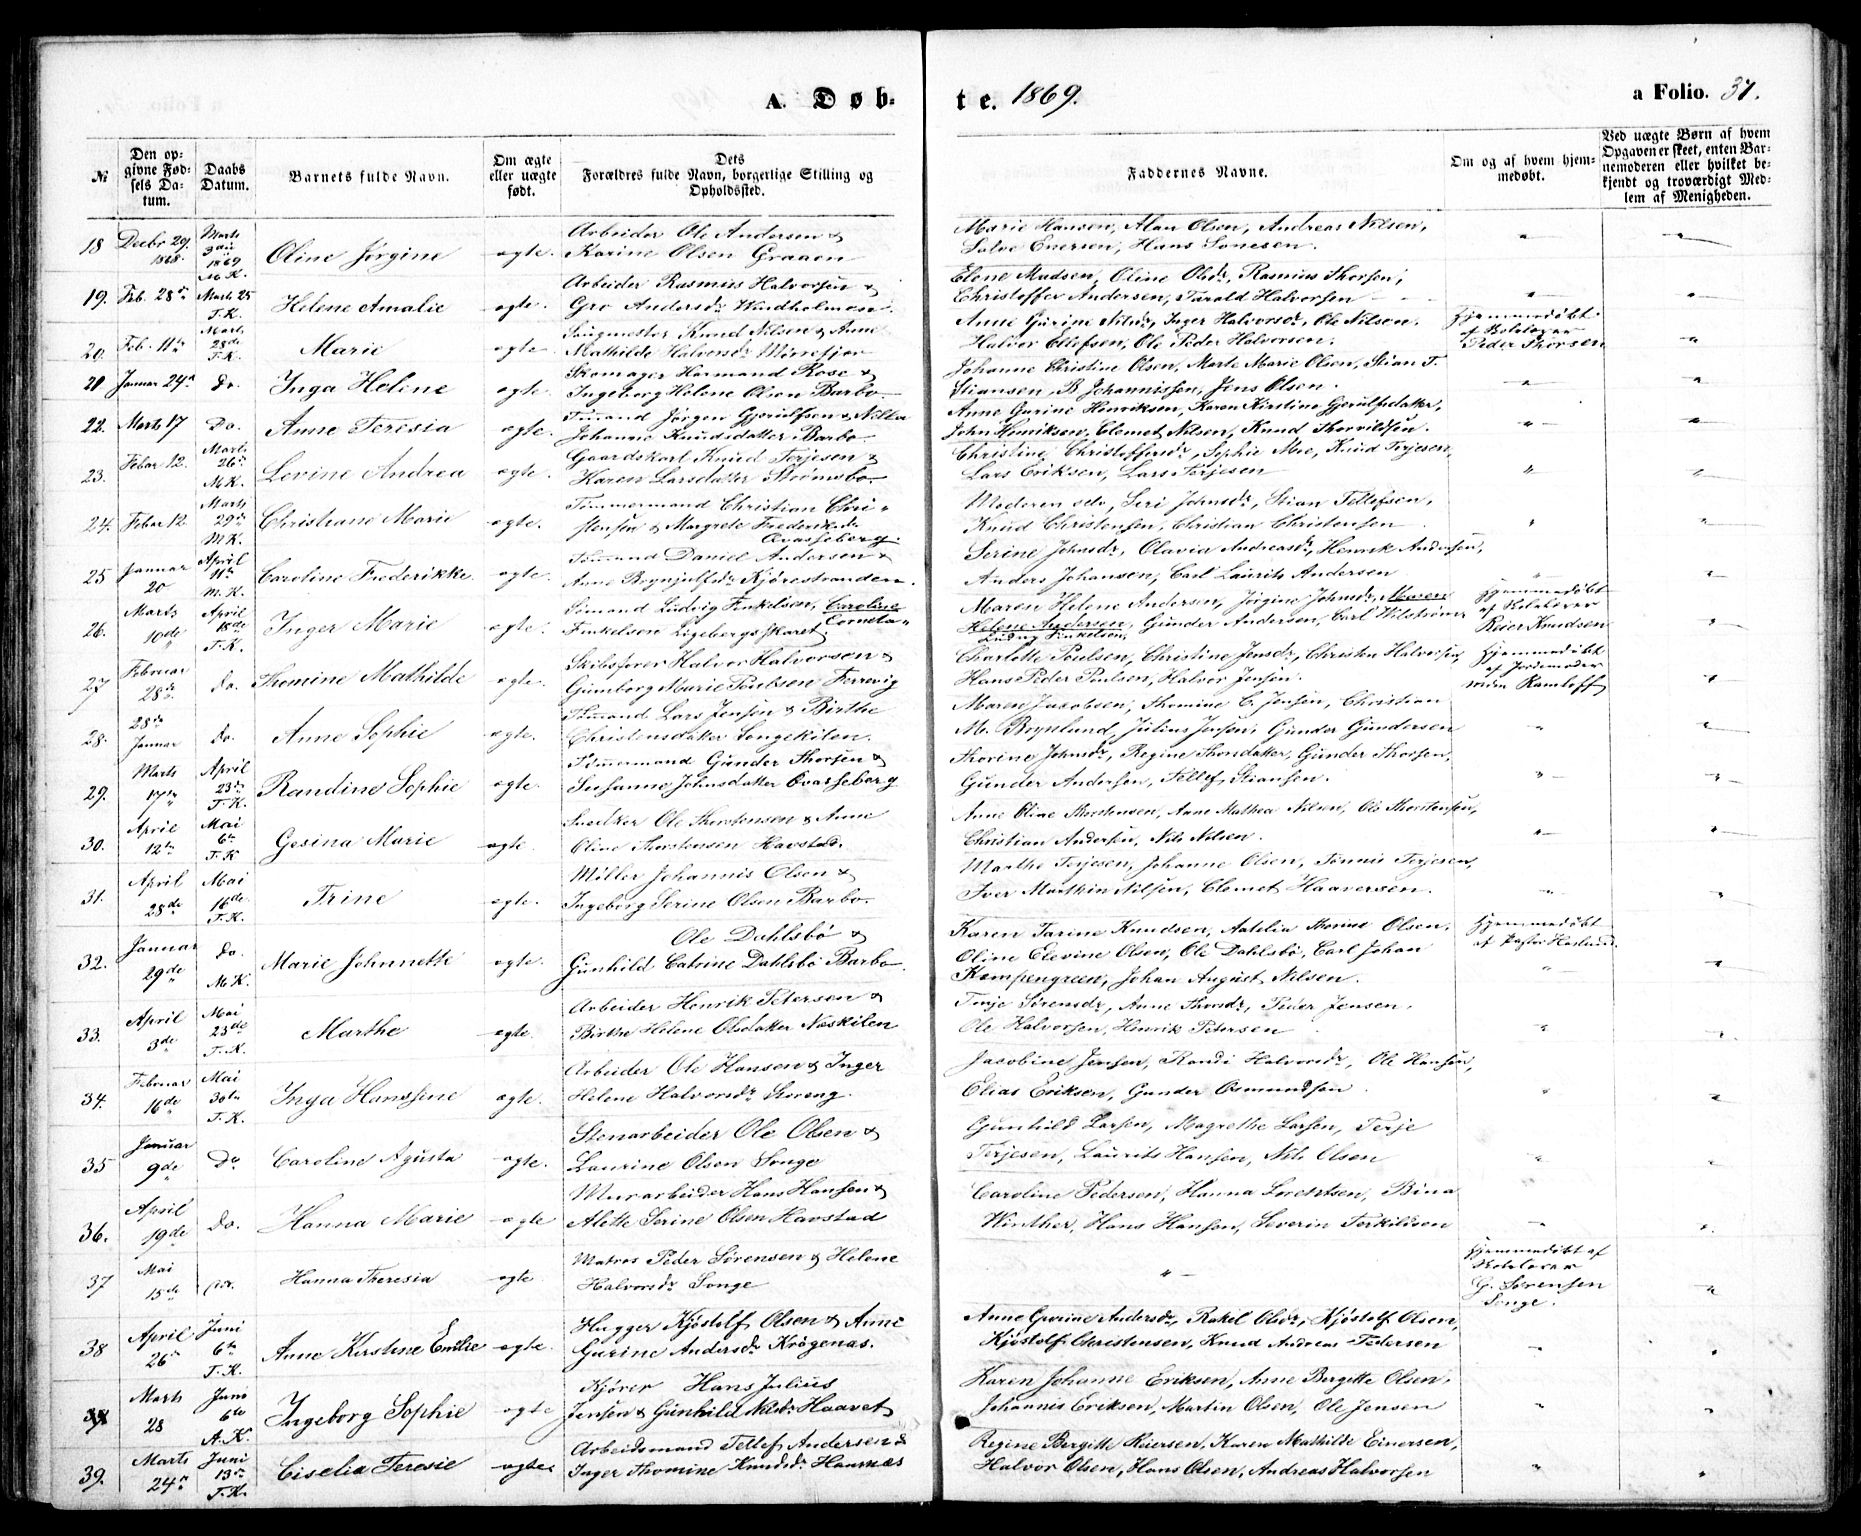 A. Døb-
te. 1869.
a Folio. 37.
№
Den op-
givne Fød-
sels Da-
tum.
Daabs
Datum.
Barnets fulde Navn.
Om ægte
eller uægte
født.
Dets
Forældres fulde Navn, borgerlige Stilling og
Opholdssted.
Faddernes Navne.
Om og af hvem hjem-
medøbt.
Ved uægte Børn af hvem
Opgaven er skeet, enten Bar-
nemoderen eller hvilket be-
kjendt og troværdigt Med-
lem af Menigheden.
18 Decbr 29. 1868. Marts 1869 M.K. Oline Jørgine ægte.
Arbeider Ole Andersen &
Karine Olsen Graaen
Marie Hansen, Alan Olsen, Andreas Nilsen,
Salve Enersen, Hans Sonesen.
19. Feb. 28de Marts 25 T.K. Helene Amalie ægte.
Arbeider Rasmus Halvorsen &
Gro Andersdr Windholmen.
Elene Madsen, Oline Olsdr, Rasmus Thorsen,
Christoffer Andersen, Tarald Halvorsen
20. Feb. 11te Marts 28de T.K. Marie ægte.
Knud Nilsen & Anne
Mathilde Halvorsdr
Anne Gurine Nilsdr, Inger Halvorsdr, Ole Nilsen,
Halvor Ellefsen, Ole Peder Halvorsen.
Hjemmedøbt
af Skolelærer
Peder Thorsen
21 Januar 24de Do. Inga Helene ægte.
Skomager Harmand Rose &
Ingeborg Helene Olsen Barbo
Johanne Christine Olsen, Marte Marie Olsen, Stian T.
Stiansen, B Johannissen, Jens Olsen.
22. Marts 17 Do. Anne Teresia ægte.
Tmand Jørgen Gjerulfsen &
Johanne Knudsdatter Barbo
Anne Gurine Henriksen, Karen Kirstine Gjerulfsdatter,
John Henriksen, Clemet Nilsen, Knud Thorvildsen.
23. Febar 12. Marts 26de M.K. Lovine Andrea ægte.
Gaardskarl Knud Terjesen &
Karen Larsdatter Strømsbo
Christine Christoffersdr, Sophie Moe, Knud Terjesen,
Lars Eriksen, Lars Terjesen
24. Febar 12. Marts 29de M.K. Christiane Marie ægte.
Tømmermand Christian Chri-
stensen & Margrete Frederiksdr
Qvasseborg.
Moderen selv, Seri Johnsdr, Stian Tellefsen,
Knud Christensen, Christian Christensen
25 Januar 20 April 11te M.K. Caroline Frederikke ægte.
Tmmand Daniel Andersen &
Anne Brynjulfsdr Kjørestranden.
Serine Johnsdr, Olavia Andreasdr, Henrik Andersen,
Anders Johansen, Carl Laurits Andersen
26. Marts 10de April 18de T.K. Inger Marie ægte.
Sømand Ludvig Finkelsen, Caroline
Cornelia
Finkelsen Ligebergs Skaret
Maren Helene Andersen, Jørgine Johnsdr, Maren
Helene Andersen, Gunder Andersen, Carl Wilstrøm
Ludvig Finkelsen,
Hjemmedøbt
af Skolelærer
Reier Knudsen
27 Februar 28de Do. Thomine Mathilde ægte.
Skibsfører Halvor Halvorsen &
Gunborg Marie Poulsen Færevig
Charlotte Poulsen, Christine Jensdr, Christen Halvorsen,
Hans Peder Poulsen, Halvor Jensen.
Hjemmedøbt
af Jordemoder
28. 28de Januar Do. Anne Sophie ægte.
Tmmand Lars Jensen & Birthe
Christensdatter Songekilen.
Maren Jacobsen, Thomine C. Jensen, Christian
M. Brynlund, Julius Jensen, Gunder Gundersen
29. Marts 17de April 23de T.K. Randine Sophie ægte.
Tømmermand Gunder Thorsen &
Susanne Johnsdatter Qvasseborg
Thorine Johnsdr, Regine Thorsdatter, Gunder Thorsen,
Gunder Andersen, Tellef Stiansen.
30. April 12te Mai 6te T.K Gesina Marie ægte.
Snedker Ole Thorstensen & Anne
Oline Thorstensen Havstad.
Anne Oline Thorstensen, Anne Mathea Nilsen, Ole Thorstensen,
Christian Andersen, Nils Nilsen.
31. April 28de Mai 16de T.K. Trine ægte.
Møller Johannis Olsen &
Ingeborg Serine Olsen Barbo.
Marthe Terjesen, Johanne Olsen, Tønnis Terjesen,
Iver Marthin Nilsen, Clemet Haaversen.
32. Januar 29de Do. M.K. Marie Johnnette ægte.
Ole Dahlsbø &
Gunhild Catrine Dahlsbø Barbo.
Karen Tarine Knudsen, Olsen,
Oline Elevine Olsen, Ole Dahlsbø, Carl Johan
Kempengreen, Johan August Nilsen.
Hjemmedøbt
af Pastor
33. April 3de Mai 23de T.K. Marthe ægte.
Arbeider Henrik Petersen &
Birthe Helene Olsdatter Næskilen
Terje Sørensdr, Anne Thorsdr, Peder Jensen,
Ole Halvorsen, Henrik Petersen
34. Februar 16de Mai 30te T.K. Inga Hanssine ægte.
Arbeider Ole Hansen & Inger
Helene Halvorsdr Storeng.
Jacobine Jensen, Randi Halvorsdr, Ole Hansen,
Elias Eriksen, Gunder Osmundsen.
35 Januar 9de Do Caroline Agusta ægte.
Stenarbeider Ole Olsen &
Laurine Olsen Songe
Gunhild Larsen, Magrethe Larsen, Terje
Terjesen, Laurits Hansen, Nils Olsen
36. April 19de Do. Hanna Marie ægte
Murarbeider Hans Hansen &
Alette Serine Olsen Havstad
Caroline Pedersen, Hanna Lorentsen, Bina
Winther, Hans Hansen, Severin Terkildsen
37 Mai 15de Hanna Theresia ægte.
Matros Peder Sørensen & Helene
Halvorsdr Songe
Hjemmedøbt af
Skolelærer
G. Sørensen
Songe.
38 April 26de Juni 6te T.K. Anne Kirstine Emilie ægte.
Hugger Kjøstolf Olsen & Anne
Gurine Andersdr Krøgenæs.
Anne Gurine Andersdr, Rakel Olsdr, Kjøstolf Olsen,
Kjøstolf Christensen, Knud Andreas Pedersen
Marts 28 Juni 6te A.K. Ingeborg Sophie ægte
Kjører Hans Julius
Jensen & Gunhild Nilsdr Haavet
Karen Johanne Eriksen, Anne Bergitte Olsen,
Johannis Eriksen, Martin Olsen, Ole Jensen
39. Marts 24de Juni 13de T.K. Ciselia Teresie ægte
Arbeidsmand Tellef Andersen &
Inger Thomine Knudsdr Haunæs
Regine Bergitte Reiersen, Karen Mathilde Einersen,
Halvor Olsen, Hans Olsen, Andreas Halvorsen